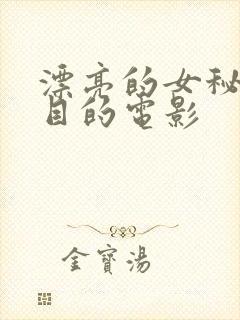 漂亮的女秘
目的电影
金寶湯